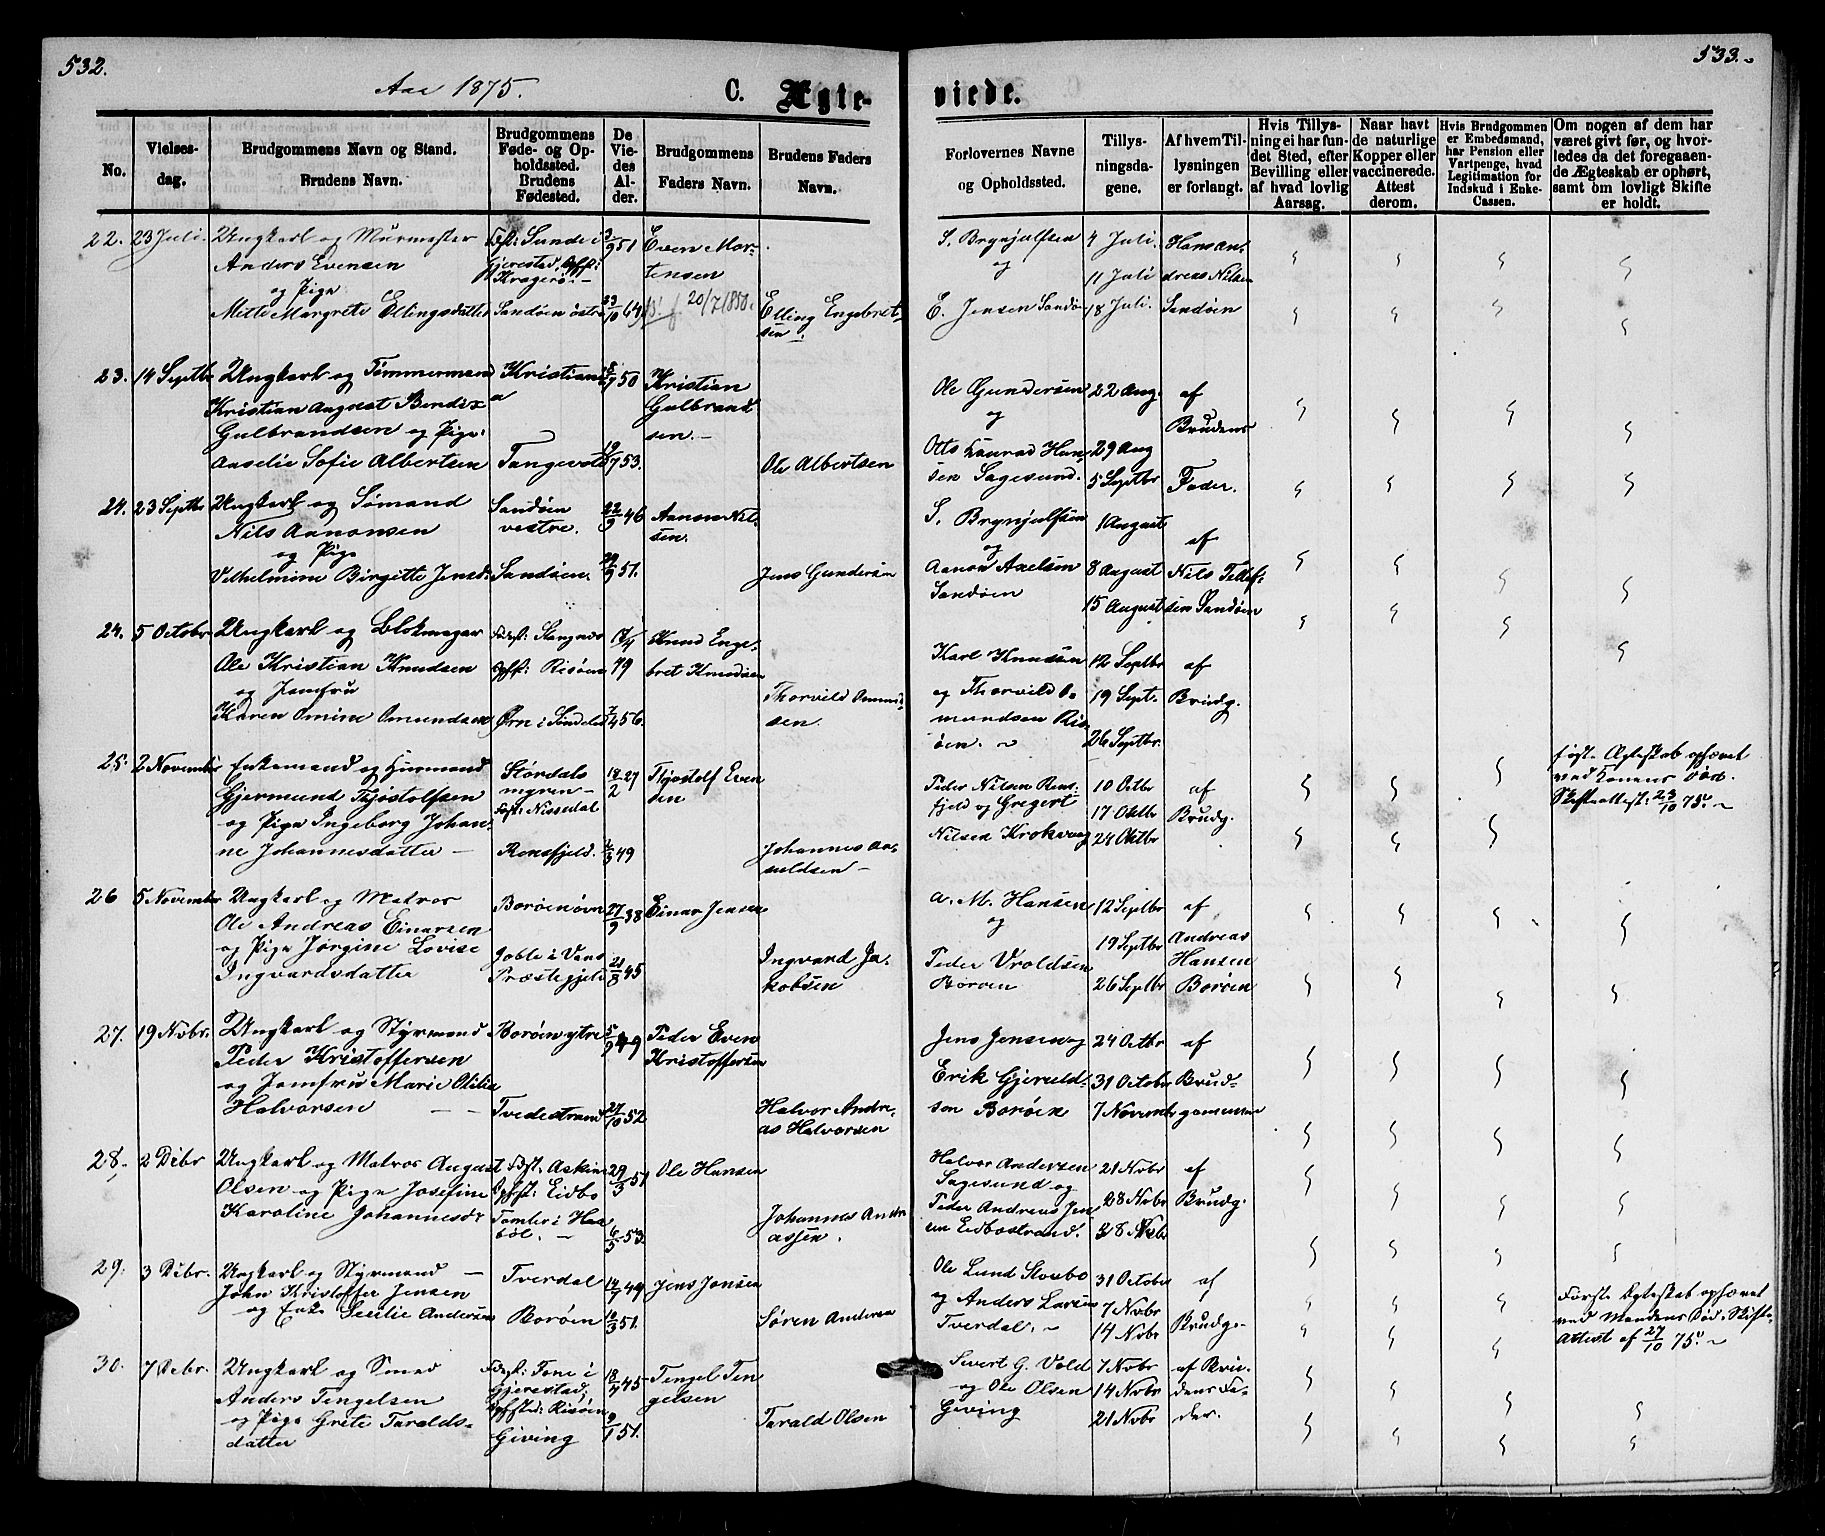 532.
Aar 1875.
C. Ægte-
viede.
533.
No.
Vielses-
dag.
Brudgommens Navn og Stand.
Brudens Navn.
Brudgommens
Føde- og Op-
holdssted.
Brudens
Fødested.
De
Vie-
des
Al-
der.
Brudgommens
Faders Navn.
Brudens Faders
Navn.
Forlovernes Navne
og Opholdssted.
Tillys-
ningsda-
gene.
Af hvem Til-
lysningen
er forlangt.
Hvis Tillys-
ning ei har fun-
det Sted, efter
Bevilling eller
af hvad lovlig
Aarsag.
Naar havt
de naturlige
Kopper eller
vaccinerede.
Attest
derom.
Hvis Brudgommen
er Embedsmand,
har Pension eller
Vartpenge, hvad
Legitimation for
Indskud i Enke-
Cassen.
Om nogen af dem har
været givt før, og hvor-
ledes da det foregaaen-
de Ægteskab er ophørt,
samt om lovligt Skifte
er holdt.
22. 23 Juli.
Ungkarl og Murmester
Anders Evensen
og Pige
Mette Margrete Ellingsdatter
Fdst: Sunde i
Gjerestad, Opst:
Kragerø.
Sandøen østre
3/9 51
23/10 64
Even Mor-
tensen
20/7 1850.
Elling Engebret-
sen.
S. Brynjulfsen
og
E. Jensen Sandø
4 Juli.
11 Juli
18 Juli.
Hans An-
dreas Nilsen
Sandøen
23. 14 Septbr
Ungkarl og Tømmermand
Kristian August Bendix
Gulbrandsen og Pige
Amelie Sofie Albertsen
Kristiani-
a
Tangevold
50
19/7 53.
Kristian
Gulbrand
sen.
Ole Albertsen
Ole Gundersen
og
Otto Konrad Han-
sen Sagesund.
22 Aug.
29 Aug
5 Septbr
af
Brudens
Fader.
24. 23 Septbr
Ungkarl og Sømand
Nils Aanonsen
og Pige
Vilhelmine Birgitte Jensd.
Sandøen
vestre.
Sandøen.
22/9 46
51.
Aanon Nil-
sen.
Jens Gundersen
S. Brynjulfsen
og
Aanon Axelsen
Sandøen
1 August
8 August
15 August
af
Nils Tellef-
sen Sandøen
24. 5 Octobr
Ungkarl og Blokmager
Ole Kristian Knudsen
og Jomfru
Karen Omine Omundsen
Fødst: Stangnes
Opst: Risøen
Ørn i Søndeled
17/4
49
7/4 56.
Knud Enge-
bret Knudsen
Thorvild Omund-
sen.
Karl Knudsen
og Thorvild O-
mundsen Ris-
øen.
12 Septbr
19 Sept.
26 Septbr.
af
Brudg.
25. 2 November
Enkemand og Huusmand
Gjermund Tjøstolfsen
og Pige Ingeborg Johan-
ne Johannesdatter
Stördals
myren
Fdst: Nissedal
Rønsfjeld.
18/2 27
2/3 49
Tjøstolf Even
sen
Johannes Aa-
nuldsen
Peder Nilsen Røns-
fjeld og Gregert
Nilsen Krokvaag
10 Octbr
17 Oktbr
24 Oktbr
af
Brudg.
først Ægteskab ophævet
ved Konens Død.
Skifteattest: 23/10 75.
26 5 November
Ungkarl og Matros
Ole Andreas Einarsen
og Pige Jørgine Lovise
Ingvardsdatter
Borøen øvre
Goble i Vans
Præstegjeld
27/9 38
21/8 45
Einar Jensen
Ingvard Ja-
kobsen
A. M. Hansen
og
Peder Vroldsen
Borøen
12 Septbr
19 Septbr
26 Septbr
af
Andreas
Hansen
Borøen
27. 19 Nobr.
Ungkarl og Styrmand
Peder Kristoffersen
og Jomfru Marie Otilie
Halvorsen
Borøen ytre
Tvedestrand
5/9 49
27/10 52
Peder Even
Kristoffersen
Halvor Andre-
as Halvorsen
Jens Jensen og
Erik Gjeruld-
sen Borøen
24 Octbr
31 October
7 Novembr
af
Brud-
gommen
28. 2 Debr
Ungkarl og Matros August
Olsen og Pige Josefine
Karoline Johannesdr
Fdst: Askim
Opst: Eidbo
Tømte i Haa-
bøl.
29/3 51
6/5 53.
Ole Hansen
Johannes Andre
assen.
Halvor Andersen
Sagesund og
Peder Andreas Jen
sen Eidbostrand.
21 Nobr
28 Nobr
28 Nobr
af
Brudg.
29. 3 Debr.
Ungkarl og Styrmand
John Kristoffer Jensen
og Enke Secilie Andersen
Tverdal
Borøen
12/7 49
18/3 51.
Jens Jensen
Søren Andersen
Ole Lund Stoebo
og Anders Larsen
Tverdal.
31 October
7 Nobr
14 Nobr
af
Brudg.
Første Ægteskab ophævet
ved Mandens Død. Skifte-
Attest af 27/10 75.
30. 7 Debr.
Ungkarl og Smed
Anders Tengelsen
og Pige Grete Taralds-
datter
Fdst: Tone i
Gjerestad,
Opsted: Risøen
Giving
18/4 45
9/1 51.
Tengel Ten
gelsen
Tarald Olsen
Sivert G. Vold
og Ole Olsen
Giving
7 Nobr
14 Nobr
21 Nobr
af Bru-
dens Fa-
der.